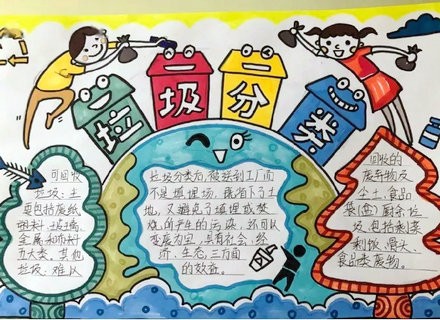 垃圾分类
可回收
垃圾：主
要包括废纸
塑料、玻璃、
金属和布料
五大类。其他
垃圾，难以
垃圾分类后，被送到工厂而
不是填埋场，既省下了土
地，又避免了填埋或焚
烧所产生的污染，还可以
变废为宝，具有社会、经
济、生态，三方面
的效益。
回收的
废弃物及
尘土、食品
袋(盒)厨余垃
圾包括剩菜
剩饭、骨头
食品类废物。